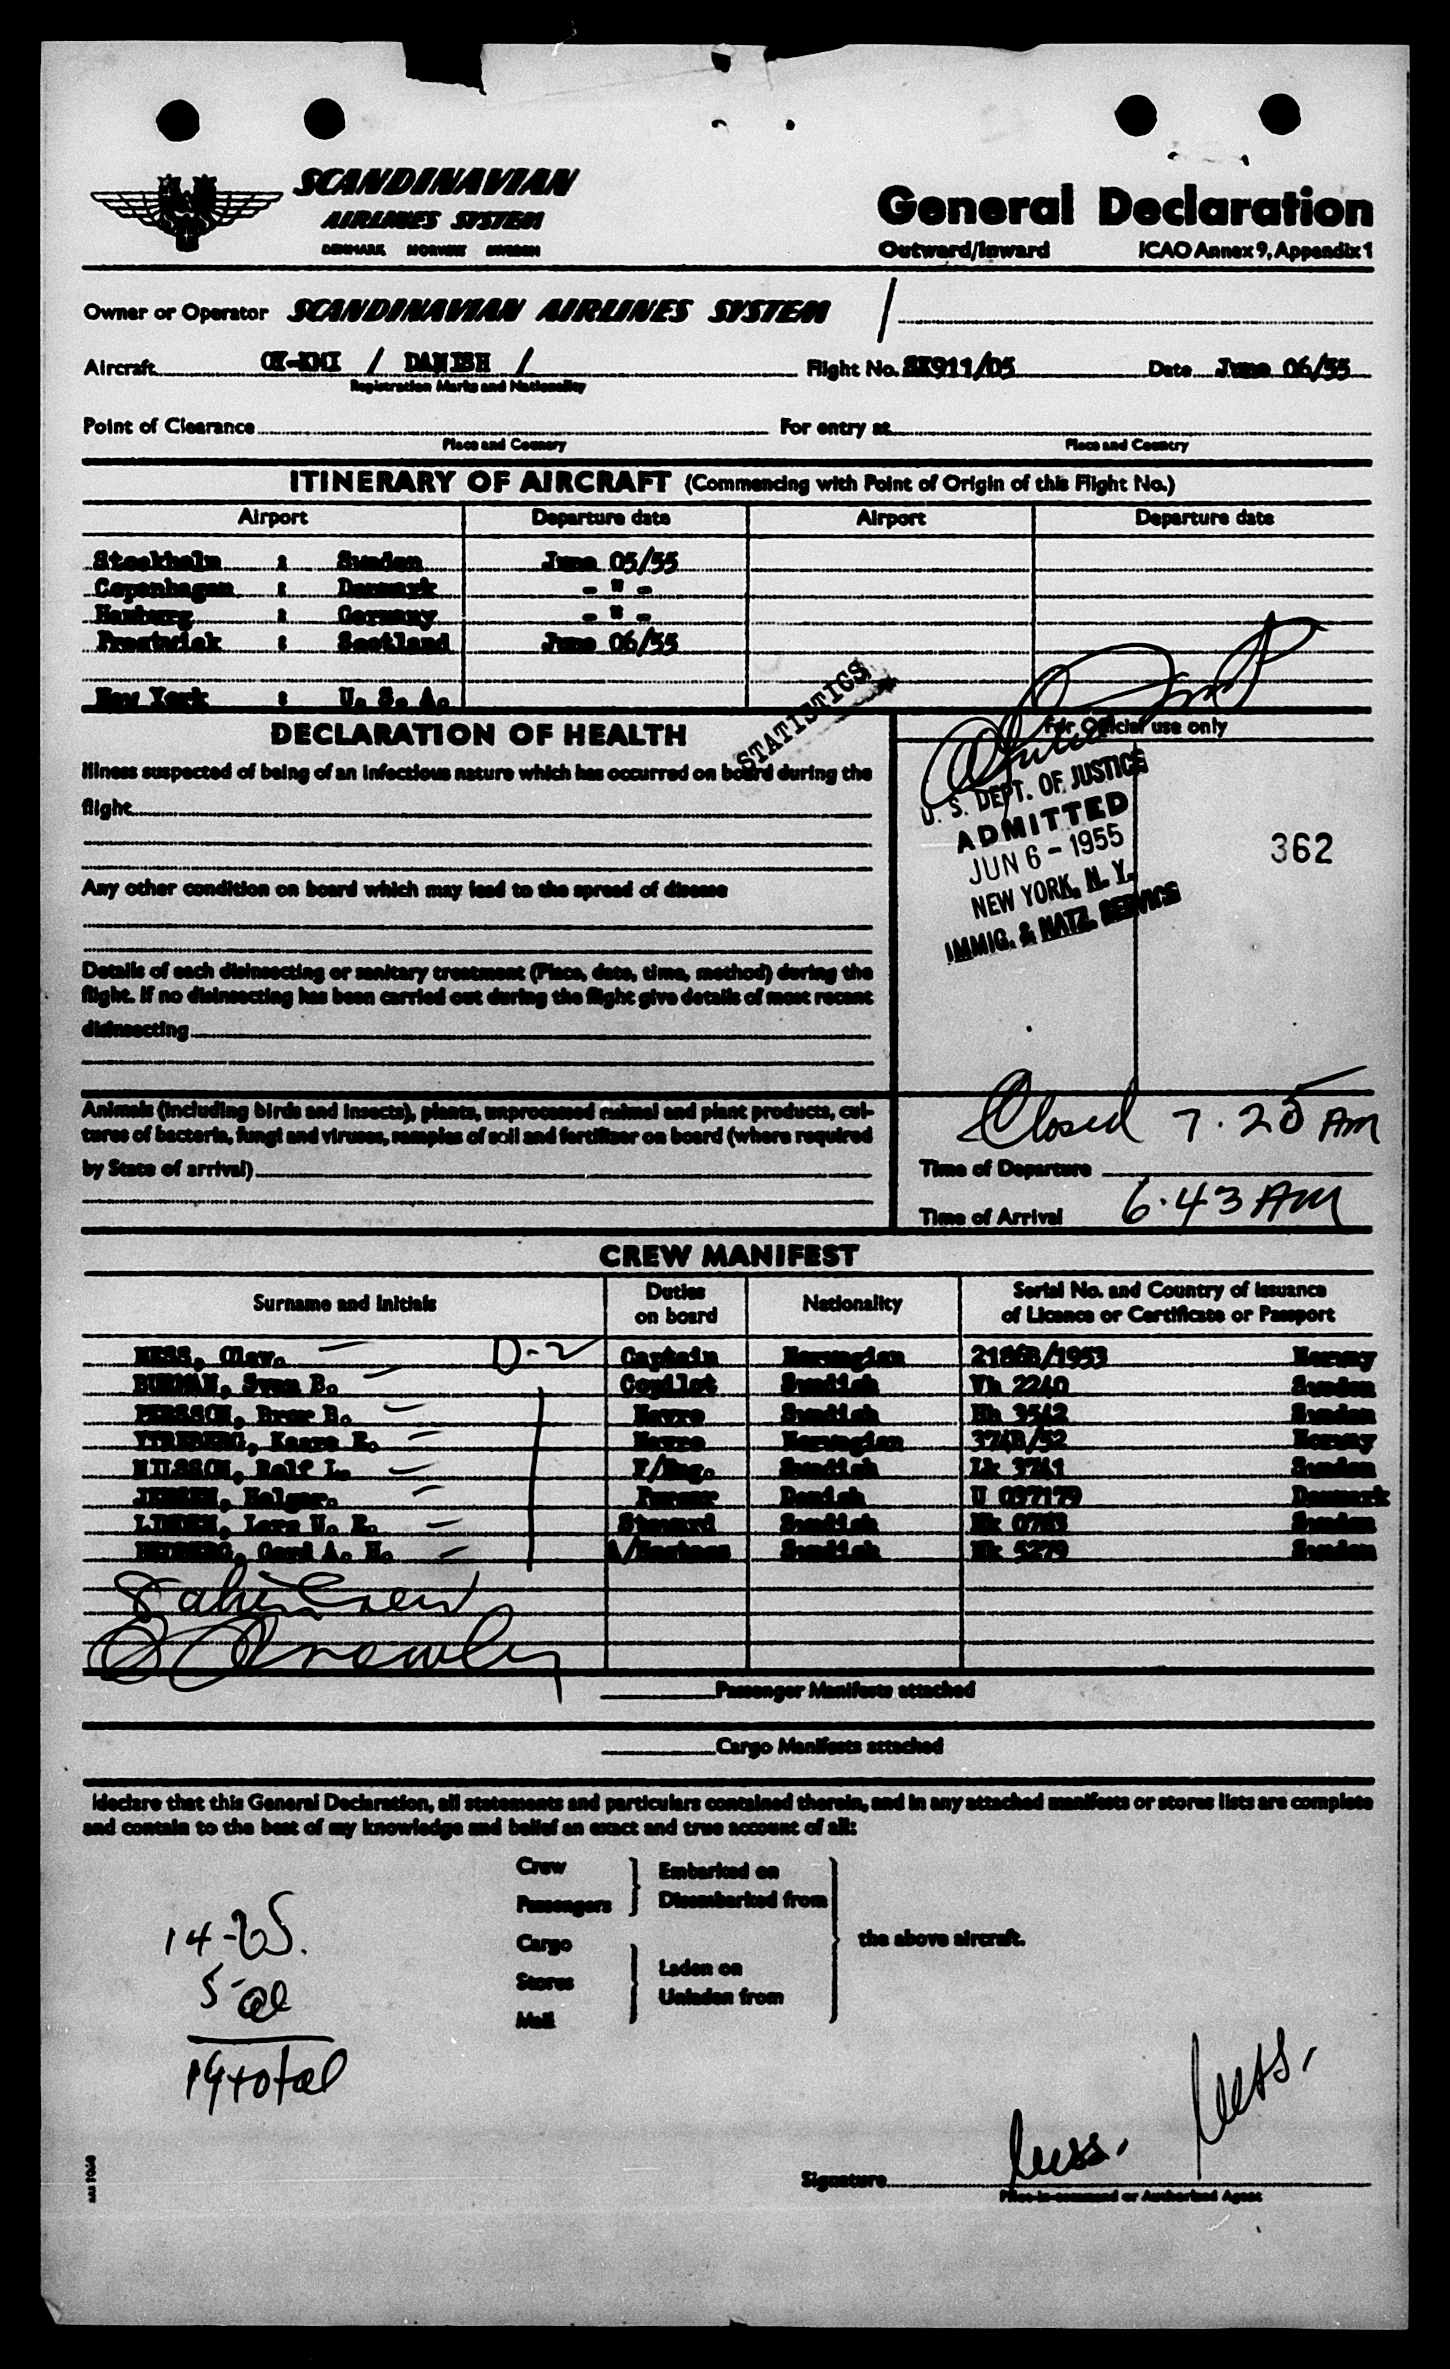 SCANDINAVIAN
AIRLINES SYSTEM
DENMARK NORWAY SWEDEN
General Declaration
Outward/Inward ICAO Annex 9, Appendix 1
Owner or Operator SCANDINAVIAN AIRLINES SYSTEM /
Aircraft OY-KMI / DANISH / Flight No. SK911/05 Date June 06/55
Registration Marks and Nationality
Point of Clearance For entry at
Place and Country Place and Country
ITINERARY OF AIRCRAFT (Commencing with Point of Origin of this Flight No.)
Airport Departure date Airport Departure date
Stockholm : Sweden June 05/55
Copenhagen : Denmark - " -
Hamburg : Germany - " -
Prestwick : Scotland June 06/55
New York : U. S. A.
STATISTICS
DECLARATION OF HEALTH
For Official use only
Illness suspected of being of an infectious nature which has occurred on board during the
flight
Any other condition on board which may lead to the spread of disease
Details of each disinsecting or sanitary treatment (Place, date, time, method) during the
flight. If no disinsecting has been carried out during the flight give details of most recent
disinsecting
U. S. DEPT. OF JUSTICE
ADMITTED
JUN 6 - 1955
NEW YORK, N. Y.
IMMIG. & NATZ. SERVICE
362
Animals (including birds and insects), plants, unprocessed animal and plant products, cul-
tures of bacteria, fungi and viruses, samples of soil and fertilizer on board (where required
by State of arrival)
Closed 7.25 AM
Time of Departure
Time of Arrival 6.43 AM
CREW MANIFEST
Surname and Initials Duties on board Nationality Serial No. and Country of Issuance of Licence or Certificate or Passport
NESS, Olav. D-2 Captain Norwegian 2186B/1953 Norway
Sven B. Copilot Swedish Vh 2240 Sweden
PERSSON, Bror B. Navro Swedish Hh 3542 Sweden
YTREBERG, Kaare E. Navro Norwegian 374B/52 Norway
NILSSON, Rolf L. F/Eng. Swedish Lk 3741 Sweden
JENSEN, Holger. Purser Danish U 097179 Denmark
LINDEN, Lars U. E. Steward Swedish Nk 0763 Sweden
Gerd A. H. A/Hostess Swedish Nk 5279 Sweden
Crew
Passenger Manifests attached
Cargo Manifests attached
I declare that this General Declaration, all statements and particulars contained therein, and in any attached manifests or stores lists are complete
and contain to the best of my knowledge and belief an exact and true account of all:
Crew
Passengers
Embarked on
Disembarked from
Cargo
Stores
Mail
Laden on
Unladen from
the above aircraft.
14-US.
5-al
19 total
Ness.
Ness.
Signature
Pilot-in-command or Authorized Agent